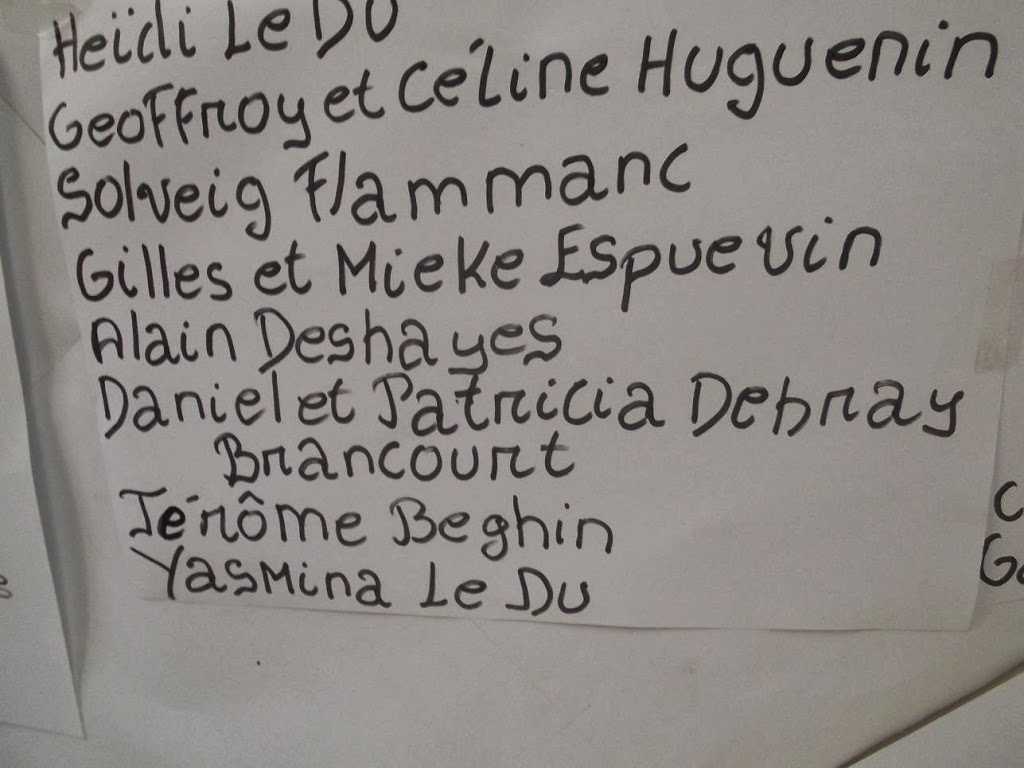 Heïdi Le DU
Geoffroy et Céline Huguenin
Solveig Flammanc
Gilles et Mieke Espuevin
Alain Deshayes
Daniel et Patricia Debray
Brancourt
Jérôme Beghin
Yasmina Le Du